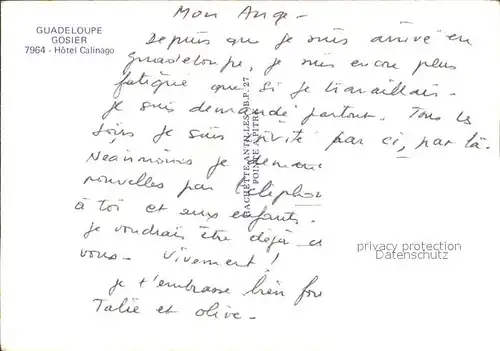 GUADELOUPE
GOSIER
7964 - Hôtel Calinago
Mon Ange -
Depuis que je suis arrivé en
guadeloupe, je suis encore plus
fatigué que si je travaillais.
je suis demandé partout. Tous les
soirs je suis invité par ci, par là.
Néanmoins je
nouvelles par téléphon
à toi et aux enfants.
je voudrais être déjà
vous - Vivement !
je t'embrasse bien for
Talie et olive -
HACHETTE ANTILLES B.P. 27
POINTE A PITRE
privacy protection
Datenschutz